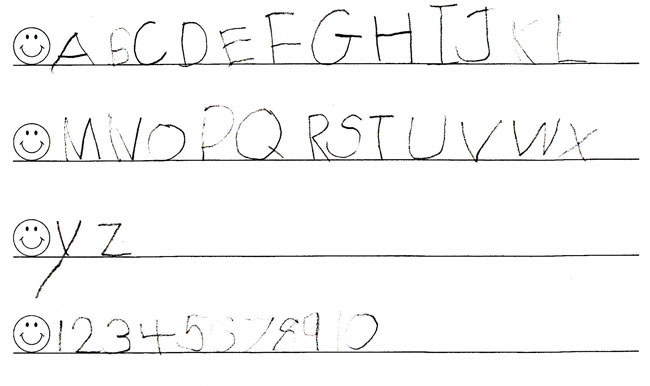 A B C D E F G H I J K L
M N O P Q R S T U V W X
y z
1 2 3 4 5 6 7 8 9 10